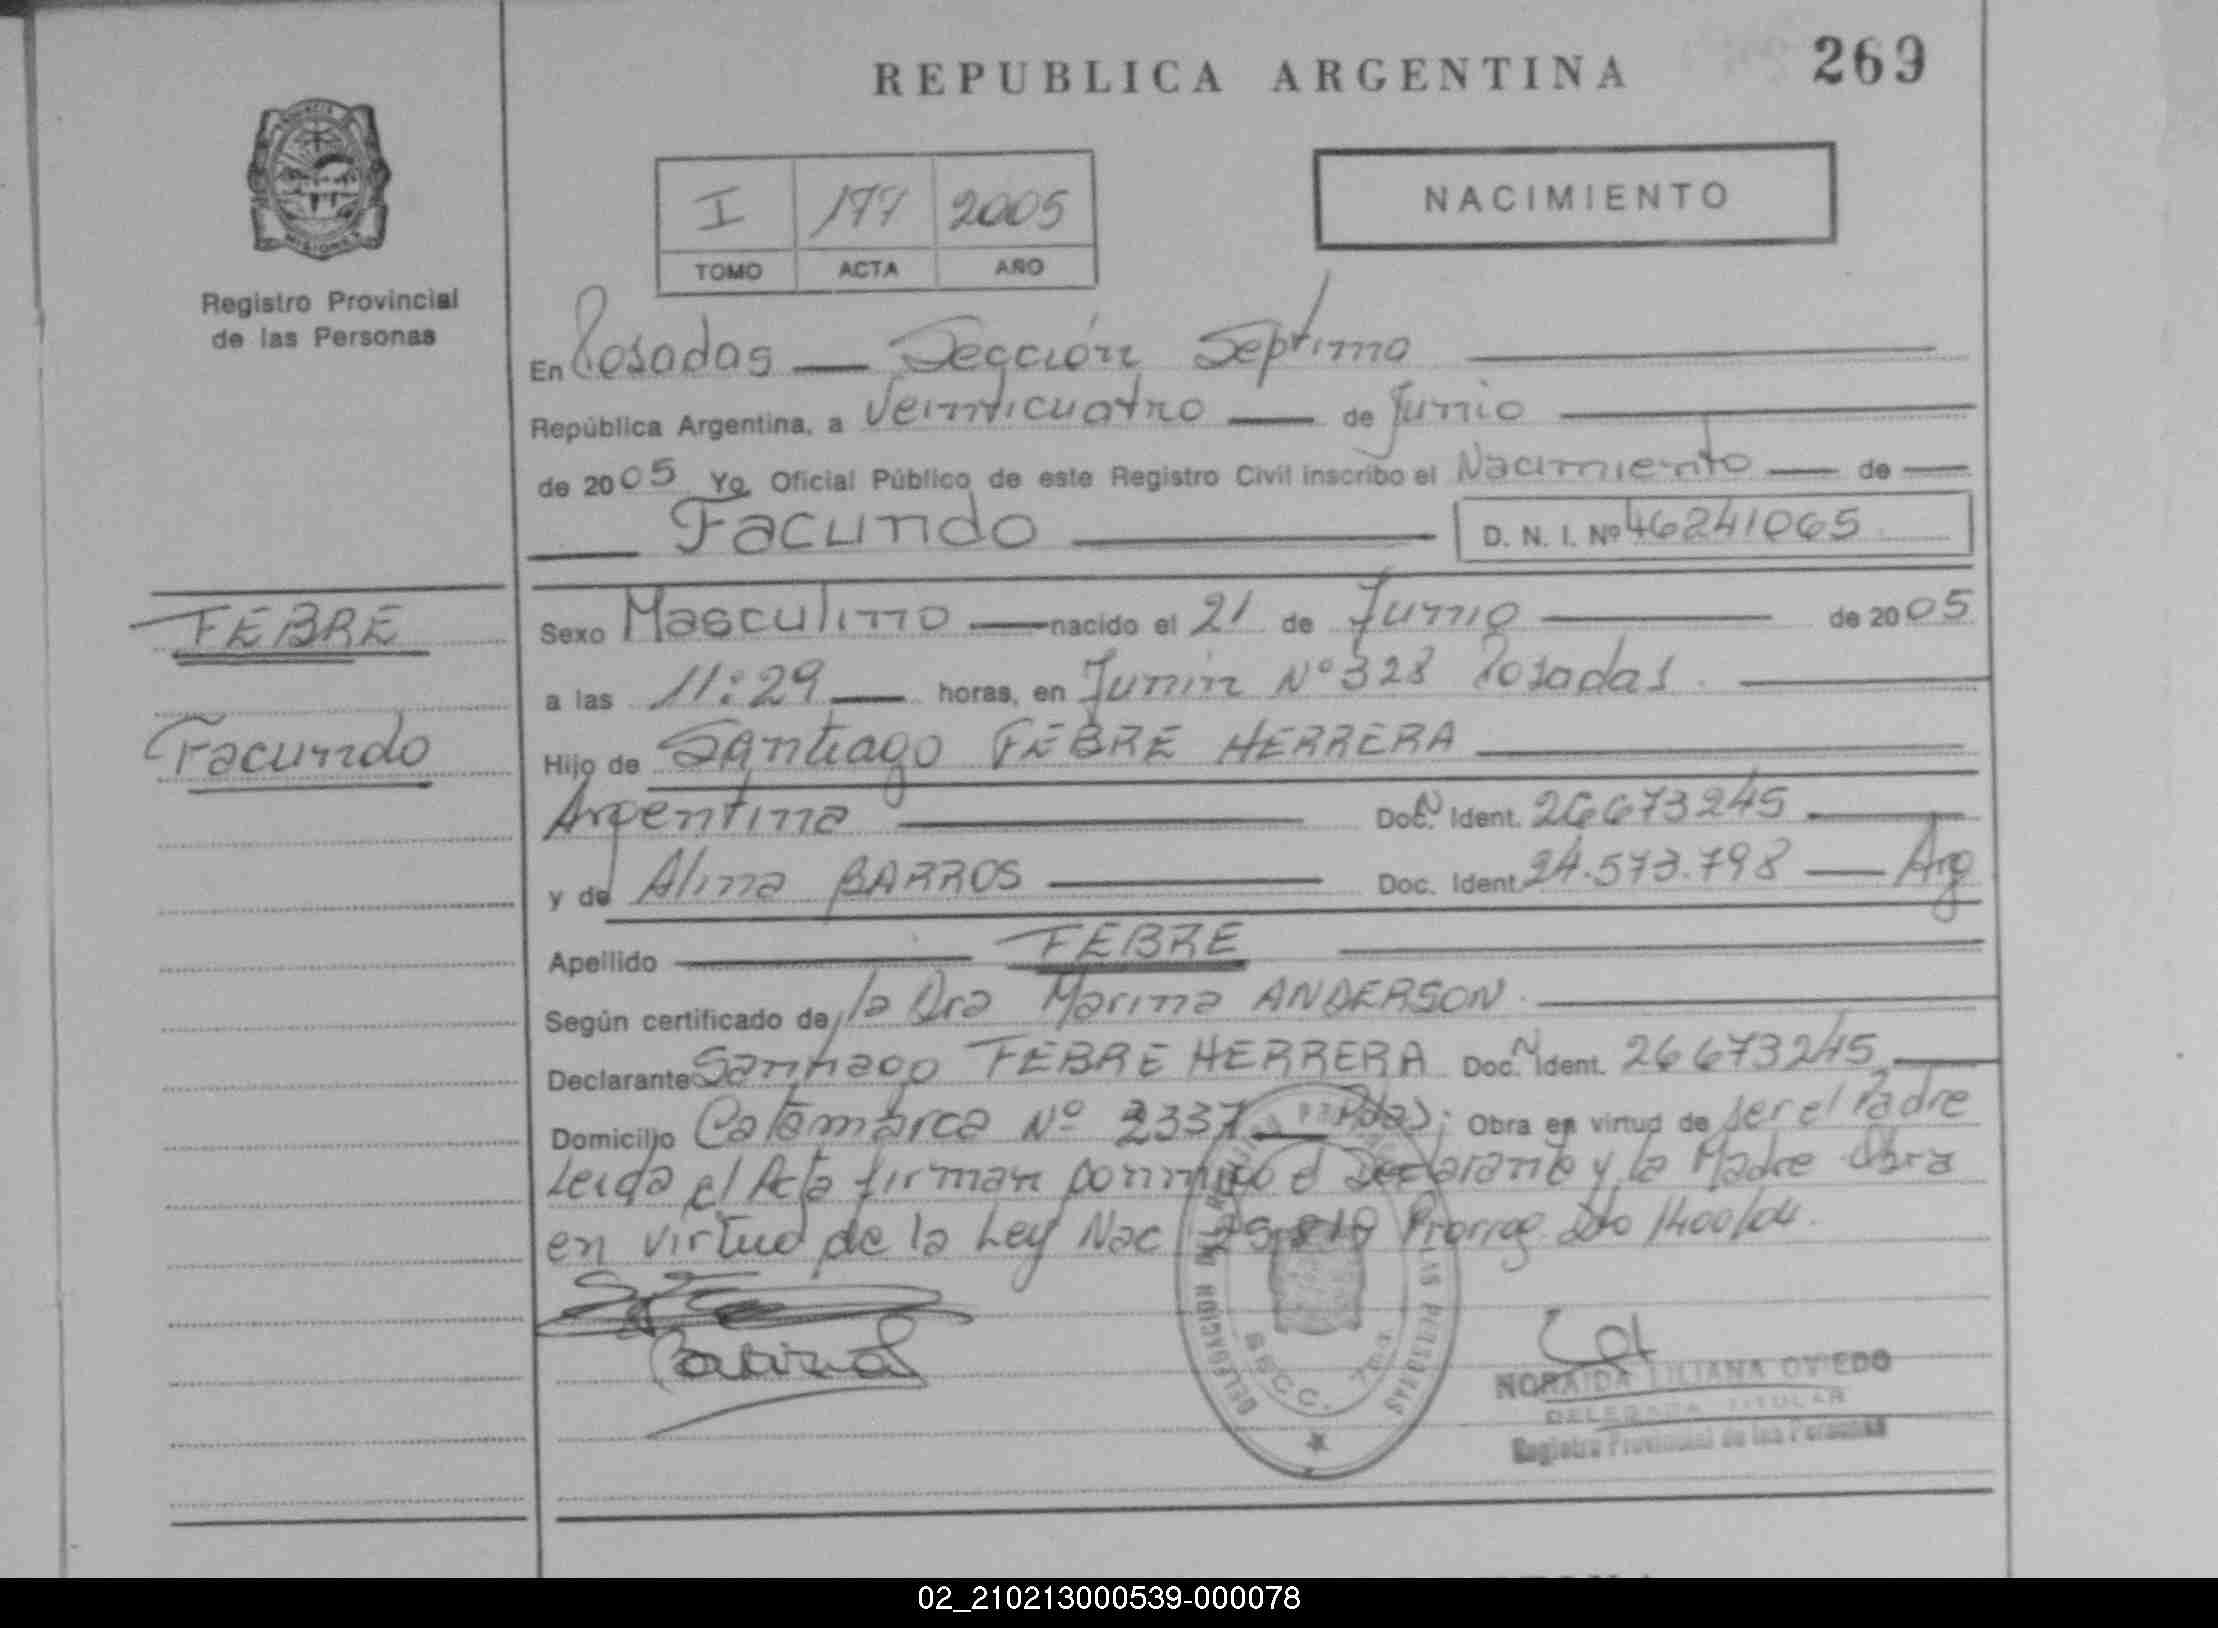 REPUBLICA ARGENTINA
269
MISIONES
Registro Provincial
de las Personas
I 177 2005
TOMO ACTA AÑO
NACIMIENTO
En Posadas — Sección Septima
República Argentina, a Veinticuatro — de Junio
de 2005 Yo, Oficial Público de este Registro Civil inscribo el Nacimiento — de —
Facundo D. N. I. Nº 46241065
FEBRE
Facundo
Sexo Masculino — nacido el 21 de Junio — de 2005
a las 11:29 — horas, en Junín Nº 328 Posadas.
Hijo de Santiago FEBRE HERRERA
Argentina — Doc. Ident. 26673245
y de Alina BARROS — Doc. Ident. 24.573.798 — Arg
Apellido — FEBRE
Según certificado de la Dra Marina ANDERSON
Declarante Santiago FEBRE HERRERA Doc. Ident. 26673245
Domicilio Catamarca Nº 2337 — Pdas; Obra en virtud de ser el Padre
Leida el Acta firman conmigo el Declarante y la Madre Obra
en virtud de la Ley Nac 25.819 Prorrog. Dto 1400/04.
DELEGACION
LAS PERSONAS
SECC. 7
NORAIDA LILIANA OVIEDO
DELEGADA TITULAR
Registro Provincial de las Personas
02_210213000539-000078